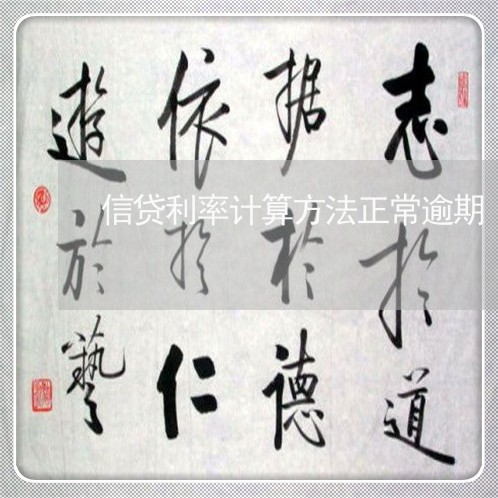 志於道
据於德
依於仁
遊於藝
信贷利率计算方法正常逾期